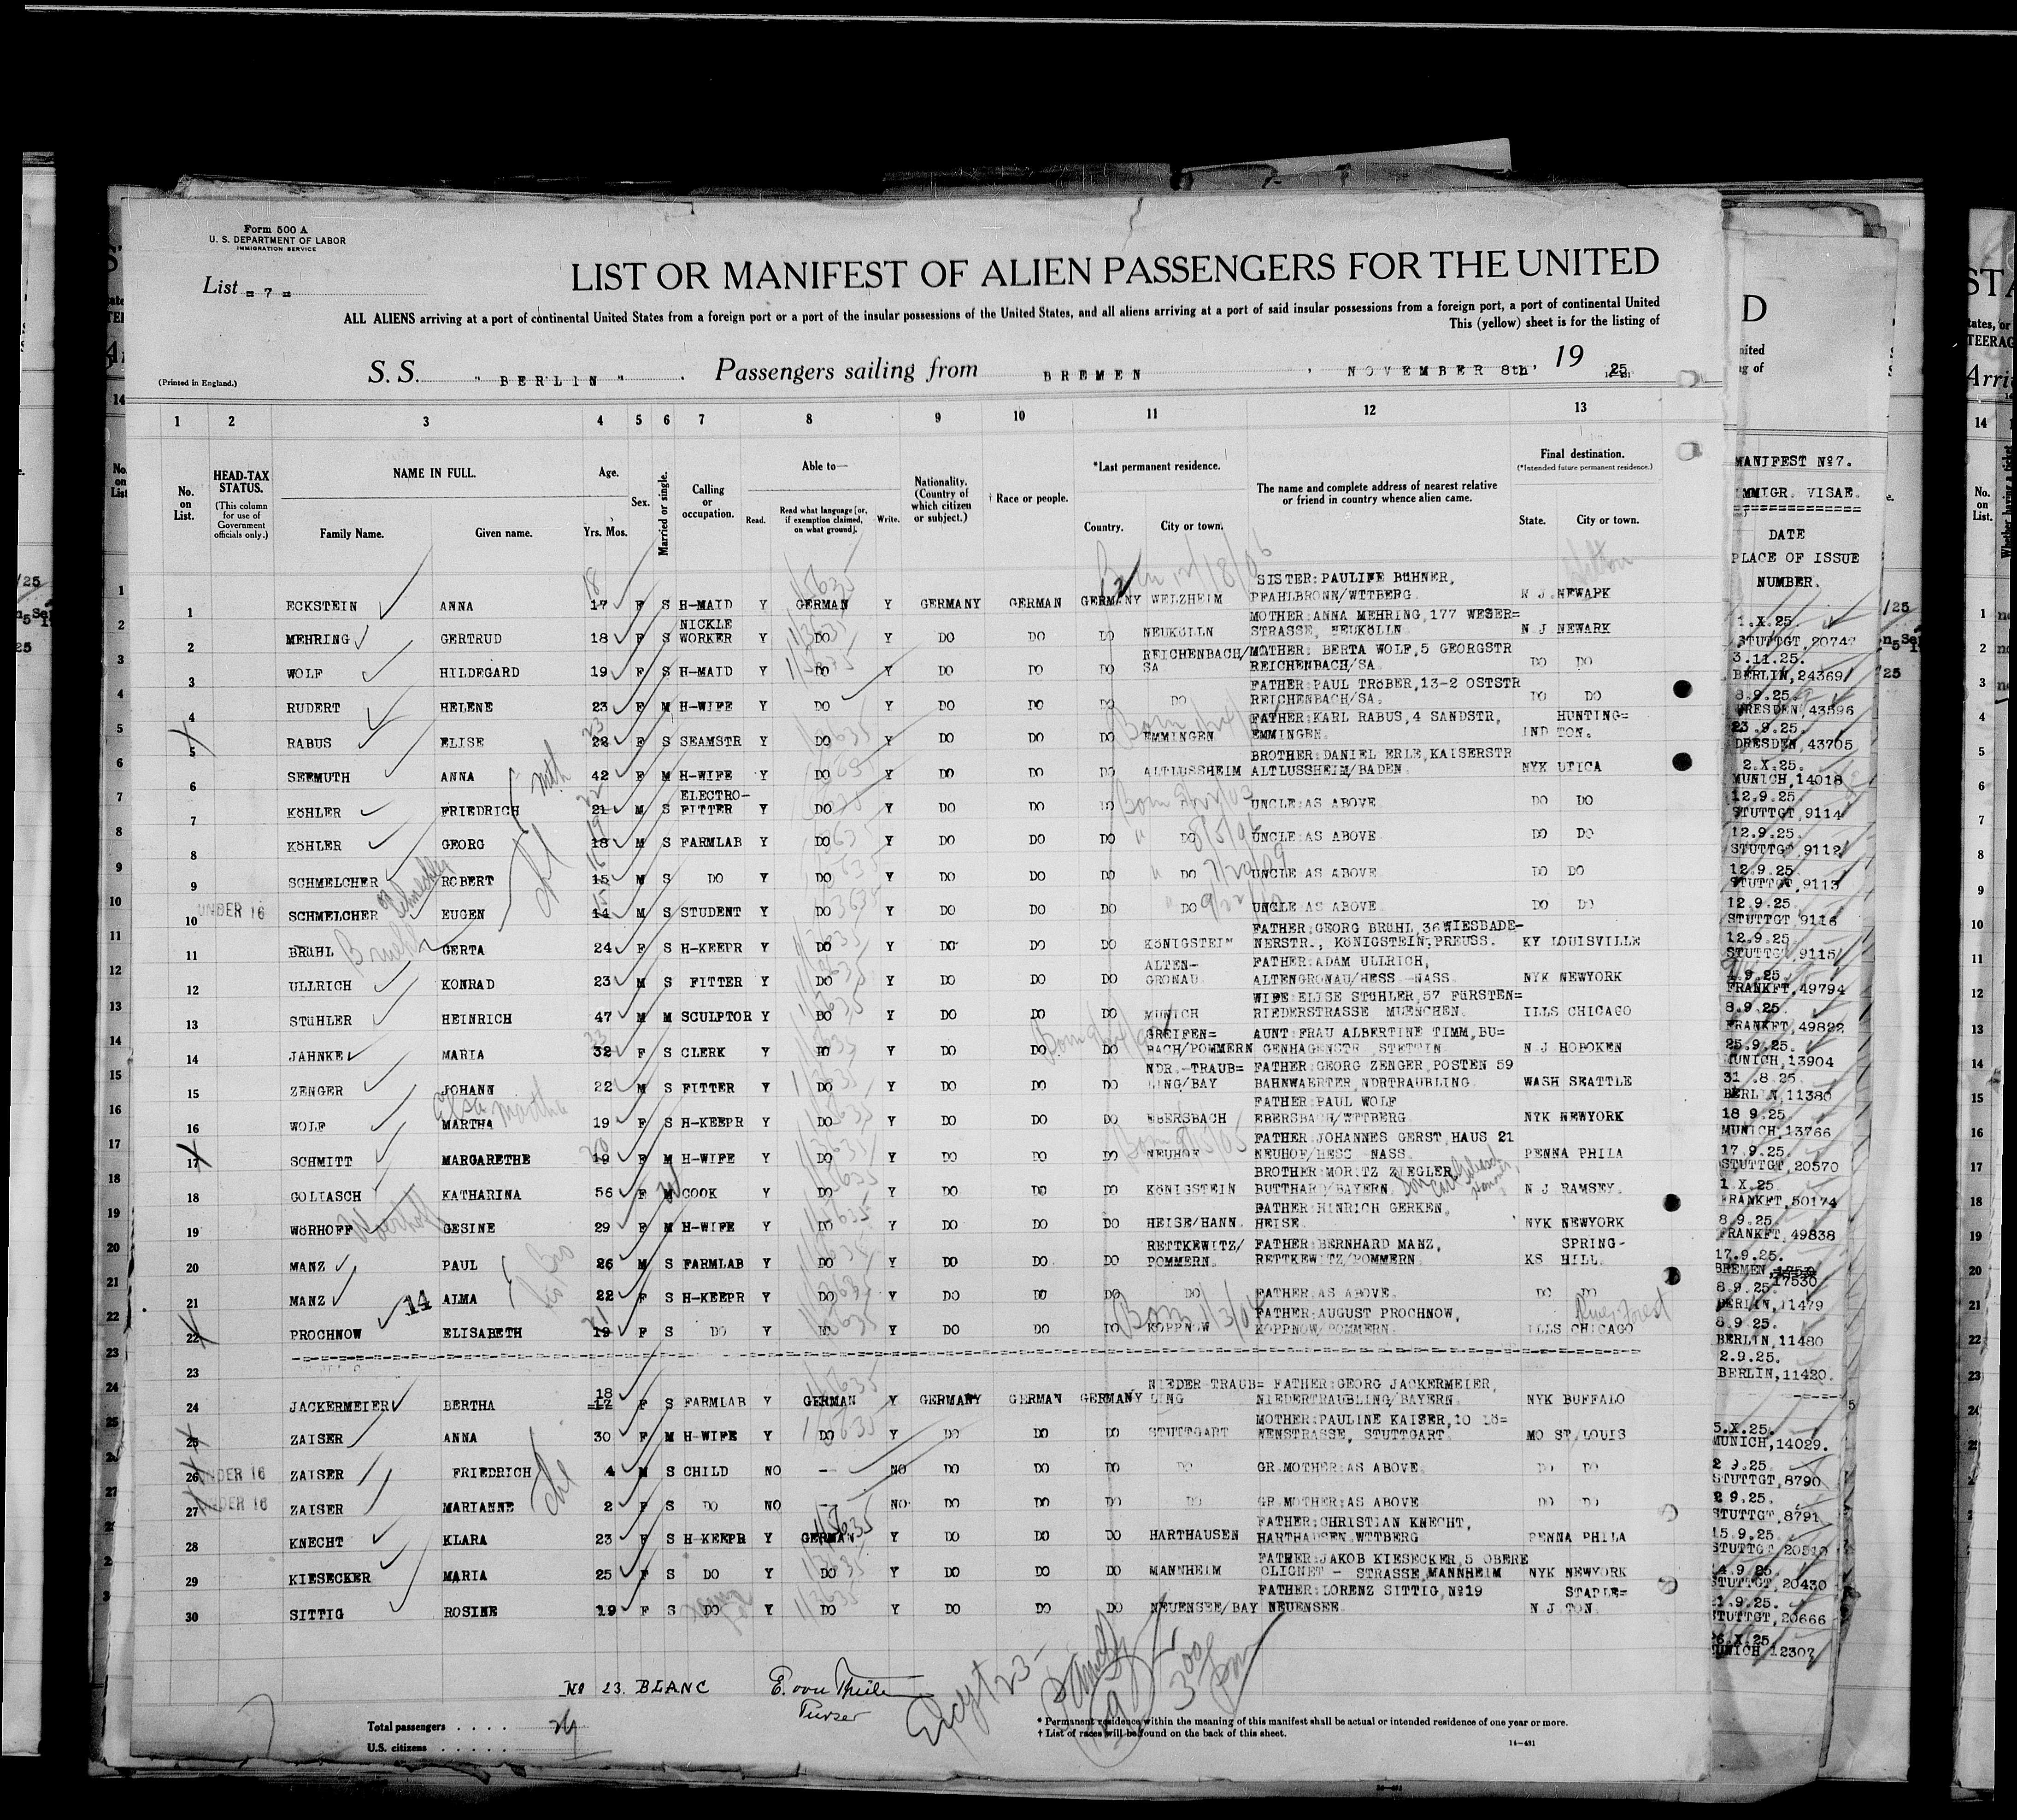 Form 500 A
U. S. DEPARTMENT OF LABOR
IMMIGRATION SERVICE
List = 7 =
LIST OR MANIFEST OF ALIEN PASSENGERS FOR THE UNITED
ALL ALIENS arriving at a port of continental United States from a foreign port or a port of the insular possessions of the United States, and all aliens arriving at a port of said insular possessions from a foreign port, a port of continental United
This (yellow) sheet is for the listing of
(Printed in England.)
S. S. " BERLIN " Passengers sailing from BREMEN , NOVEMBER 8th, 19 25
1 2 3 4 5 6 7 8 9 10 11 12 13
No. on List.
HEAD-TAX STATUS.
(This column for use of Government officials only.)
NAME IN FULL.
Family Name. Given name.
Age.
Yrs. Mos.
Sex.
Married or single.
Calling or occupation.
Able to—
Read. Read what language [or, if exemption claimed, on what ground]. Write.
Nationality. (Country of which citizen or subject.)
† Race or people.
*Last permanent residence.
Country. City or town.
The name and complete address of nearest relative or friend in country whence alien came.
Final destination.
(*Intended future permanent residence.)
State. City or town.
SISTER:PAULINE BüHNER,
1 ECKSTEIN ANNA 18 17 F S H-MAID Y GERMAN Y GERMANY GERMAN GERMANY WELZHEIM PFAHLBRONN/WTTBERG. N J NEWARK
NICKLE MOTHER:ANNA MEHRING,177 WESER=
2 MEHRING GERTRUD 18 F S WORKER Y DO Y DO DO DO NEUKöLLN STRASSE, NEUKöLLN. N J NEWARK
REICHENBACH/ MOTHER: BERTA WOLF,5 GEORGSTR
3 WOLF HILDEGARD 19 F S H-MAID Y DO Y DO DO DO SA REICHENBACH/SA. DO DO
FATHER:PAUL TRöBER,13-2 OSTSTR
4 RUDERT HELENE 23 F M H-WIFE Y DO Y DO DO DO DO REICHENBACH/SA. DO DO
FATHER:KARL RABUS,4 SANDSTR, HUNTING=
5 RABUS ELISE 23 22 F S SEAMSTR Y DO Y DO DO DO EMMINGEN EMMINGEN. IND TON.
BROTHER:DANIEL ERLE,KAISERSTR
6 SEEMUTH ANNA 42 F M H-WIFE Y DO Y DO DO DO ALTLUSSHEIM ALTLUSSHEIM/BADEN. NYK UTICA
ELECTRO-
7 KöHLER FRIEDRICH 22 21 M S FITTER Y DO Y DO DO DO UNCLE:AS ABOVE. DO DO
8 KöHLER GEORG 19 18 M S FARMLAB Y DO Y DO DO DO DO UNCLE:AS ABOVE. DO DO
9 SCHMELCHER ROBERT 16 15 M S DO Y DO Y DO DO DO DO 7/20/09 UNCLE:AS ABOVE. DO DO
UNDER 16
10 SCHMELCHER EUGEN 14 M S STUDENT Y DO Y DO DO DO DO UNCLE:AS ABOVE. DO DO
FATHER:GEORG BRüHL,36WIESBADE-
11 BRüHL Bruehl GERTA 24 F S H-KEEPR Y DO Y DO DO DO KöNIGSTEIN NERSTR., KöNIGSTEIN,PREUSS. KY LOUISVILLE
ALTEN- FATHER:ADAM ULLRICH,
12 ULLRICH KONRAD 23 M S FITTER Y DO Y DO DO DO GRONAU ALTENGRONAU/HESS.-NASS. NYK NEWYORK
WIFE:ELISE STüHLER,57 FüRSTEN=
13 STüHLER HEINRICH 47 M M SCULPTOR Y DO Y DO DO DO MUNICH RIEDERSTRASSE MUENCHEN. ILLS CHICAGO
GREIFEN= AUNT:FRAU ALBERTINE TIMM,BU=
14 JAHNKE MARIA 33 32 F S CLERK Y DO Y DO DO DO BACH/POMMERN GENHAGENSTR STETTIN. N J HOBOKEN
NDR.-TRAUB= FATHER:GEORG ZENGER,POSTEN 59
15 ZENGER JOHANN 22 M S FITTER Y DO Y DO DO DO LING/BAY BAHNWAERTER,NDRTRAUBLING. WASH SEATTLE
Elsa Martha FATHER:PAUL WOLF
16 WOLF MARTHA 19 F S H-KEEPR Y DO Y DO DO DO EBERSBACH EBERSBACH/WTTBERG. NYK NEWYORK
FATHER:JOHANNES GERST,HAUS 21
17 SCHMITT MARGARETHE 20 19 F M H-WIFE Y DO Y DO DO DO NEUHOF NEUHOF/HESS.NASS. PENNA PHILA
BROTHER:MORITZ ZIEGLER,
18 GOLIASCH KATHARINA 56 F M COOK Y DO Y DO DO DO KöNIGSTEIN BUTTHARD/BAYERN. N J RAMSEY.
FATHER:HINRICH GERKEN,
19 WöRHOFF Woerhoff GESINE 29 F M H-WIFE Y DO Y DO DO DO HEISE/HANN. HEISE. NYK NEWYORK
RETTKEWITZ/ FATHER:BERNHARD MANZ, SPRING-
20 MANZ PAUL 26 M S FARMLAB Y DO Y DO DO DO POMMERN. RETTKEWITZ/POMMERN. KS HILL.
21 MANZ 14 ALMA 22 F S H-KEEPR Y DO Y DO DO DO DO FATHER:AS ABOVE. DO DO
FATHER:AUGUST PROCHNOW, River Forest
22 PROCHNOW ELISABETH 21 19 F S DO Y DO Y DO DO DO KOPPNOW KOPPNOW/POMMERN. ILLS CHICAGO
23
NIEDER-TRAUB= FATHER:GEORG JACKERMEIER,
24 JACKERMEIER BERTHA 18 17 F S FARMLAB Y GERMAN Y GERMANY GERMAN GERMANY LING NIEDERTRAUBLING/BAYERN. NYK BUFFALO
MOTHER:PAULINE KAISER,10 Lö=
25 ZAISER ANNA 30 F M H-WIFE Y DO Y DO DO DO STUTTGART WENSTRASSE, STUTTGART. MO ST.LOUIS
26 UNDER 16 ZAISER FRIEDRICH 4 M S CHILD NO - NO DO DO DO DO GR.MOTHER:AS ABOVE. DO DO
27 UNDER 16 ZAISER MARIANNE 2 F S DO NO - NO DO DO DO DO GR.MOTHER:AS ABOVE DO DO
FATHER:CHRISTIAN KNECHT,
28 KNECHT KLARA 23 F S H-KEEPR Y GERMAN Y DO DO DO HARTHAUSEN HARTHAUSEN.WTTBERG. PENNA PHILA
FATHER:JAKOB KIESECKER,5 OBERE
29 KIESECKER MARIA 25 F S DO Y DO Y DO DO DO MANNHEIM CLIGNET - STRASSE,MANNHEIM NYK NEWYORK
FATHER:LORENZ SITTIG,Nº19 STAPLE=
30 SITTIG ROSINE 19 F S DO Y DO Y DO DO DO NEUENSEE/BAY NEUENSEE. N J TON.
No 23. BLANC
Purser
Total passengers . . . .
U.S. citizens . . . . .
* Permanent residence within the meaning of this manifest shall be actual or intended residence of one year or more.
† List of races will be found on the back of this sheet.
14—431
MANIFEST Nº7.
IMMIGR. VISAE.
DATE
PLACE OF ISSUE
NUMBER.
1.X.25.
STUTTGT,2074
3.11.25.
BERLIN,24369
8.9.25.
DRESDEN,43596
23.9.25.
DRESDEN,43705
2.X.25.
MUNICH,14018
12.9.25.
STUTTGT,9114
12.9.25.
STUTTGT,9112
12.9.25.
STUTTGT,9113
12.9.25.
STUTTGT,9116
12.9.25.
STUTTGT,9115
FRANKFT,49794
8.9.25.
FRANKFT,49822
25.9.25.
MUNICH,13904
31.8.25.
BERLIN,11380
18 9.25.
MUNICH,13766
17.9.25.
STUTTGT,20570
1.X.25.
FRANKFT,50174
8.9.25.
FRANKFT,49838
17.9.25.
BREMEN, 17530
8.9.25.
BERLIN,11479
8.9.25.
BERLIN,11480
2.9.25.
BERLIN,11420.
5.X.25.
MUNICH,14029.
2 9.25.
STUTTGT,8790
2 9.25.
STUTTGT,8791
15.9.25.
STUTTGT
STUTTGT,20430
STUTTGT,20666
MUNICH 12307